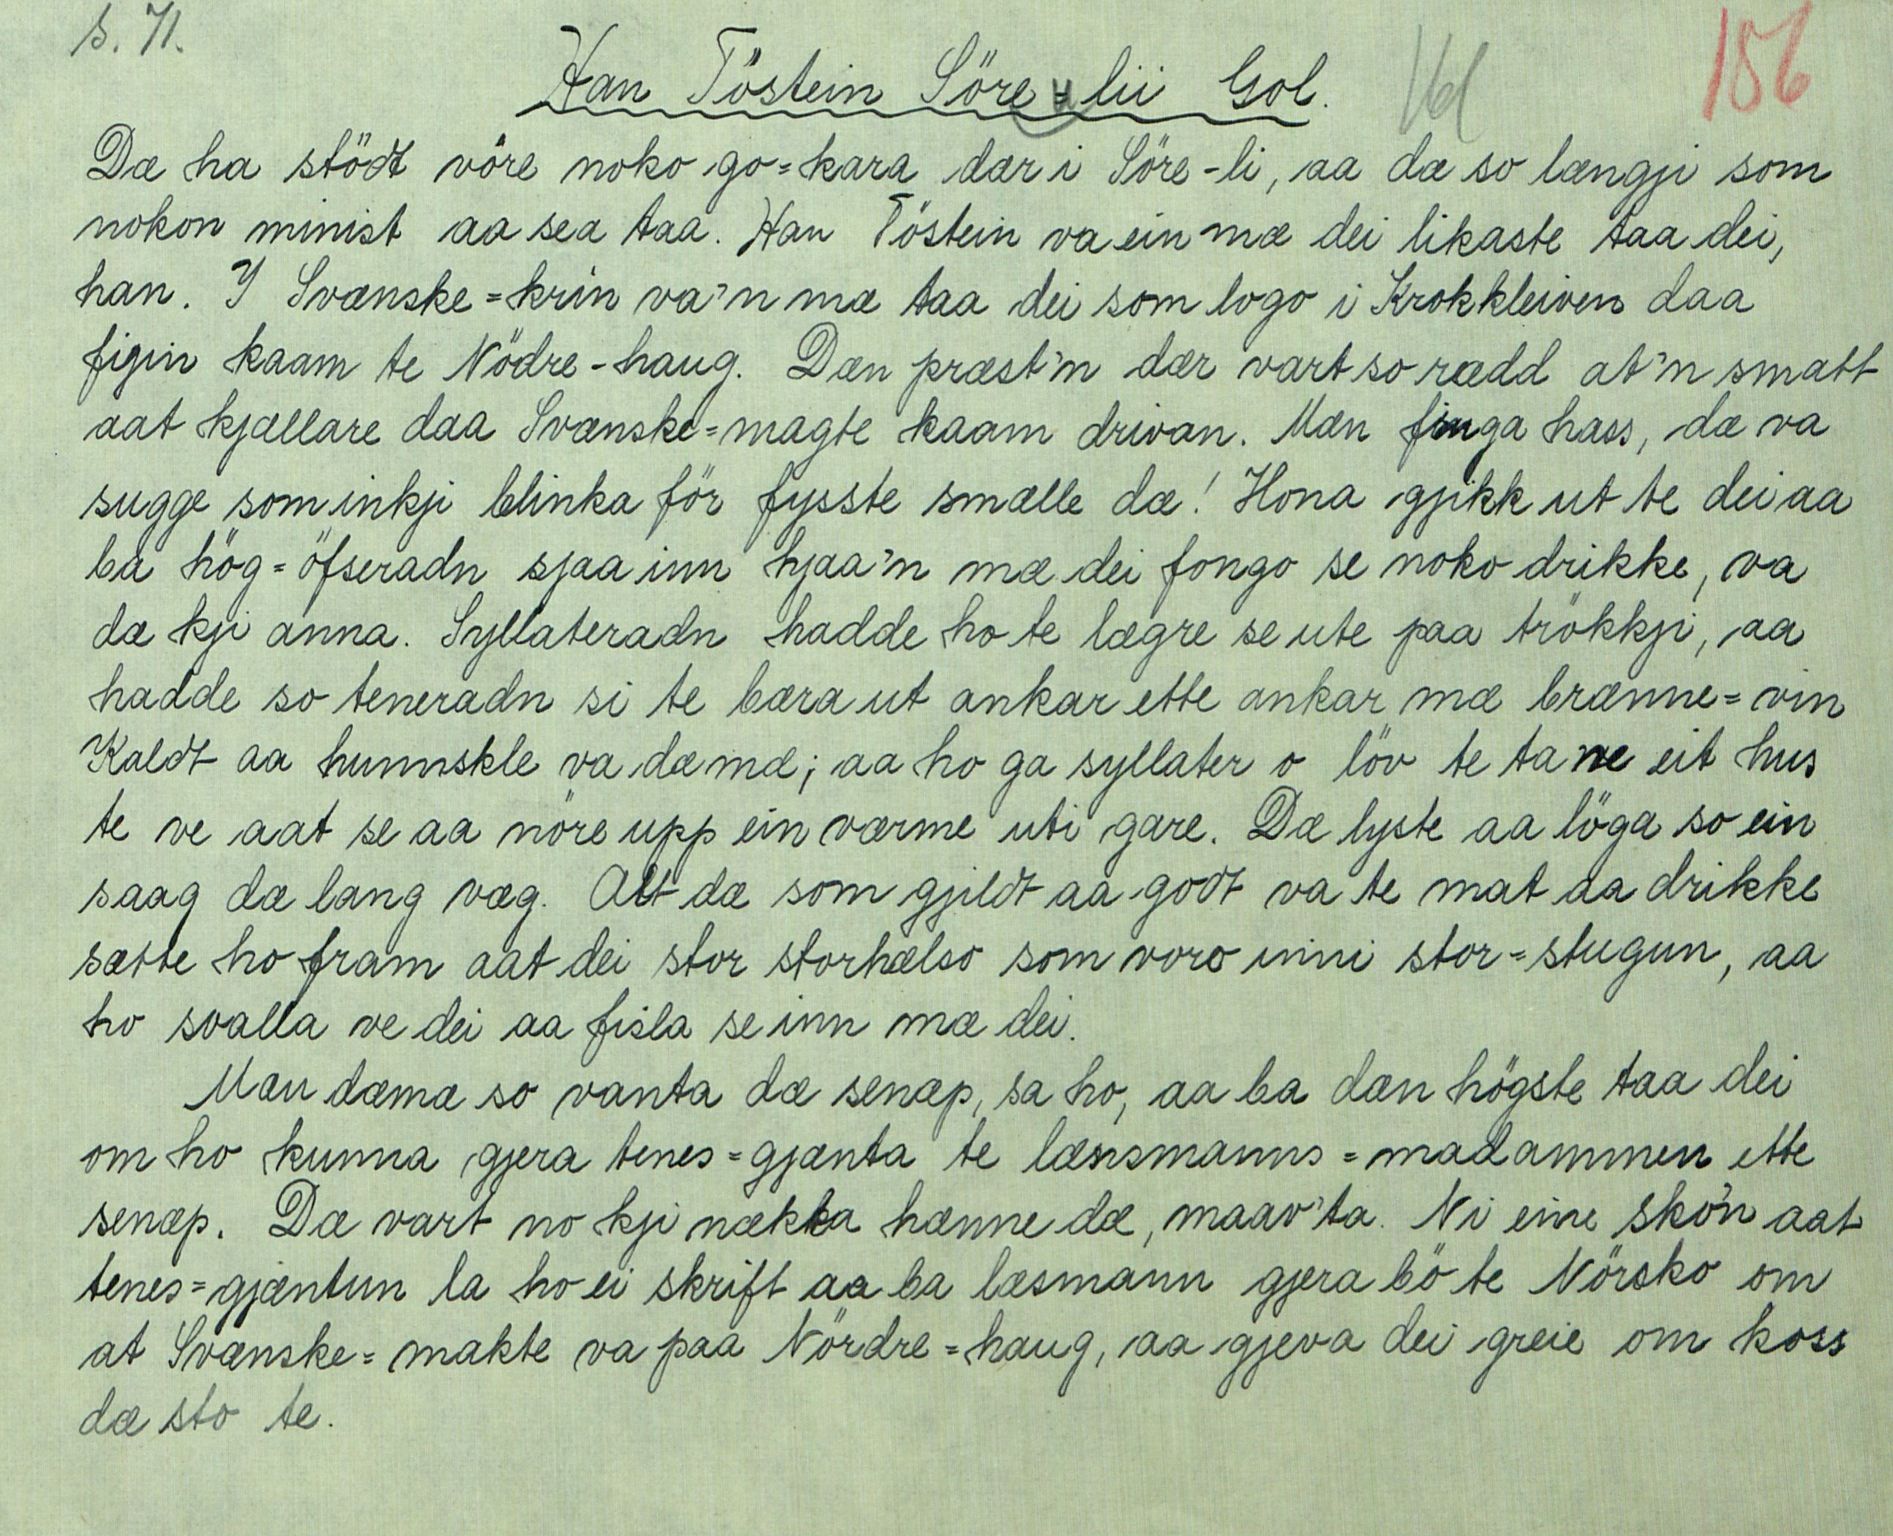 s. 71.
161
156
Han Töstein Söre=lii Gol.
Dæ ha stödt vöre noko go=kara dær i Söre-li, aa dæ so længji som
nokon minist aa sea taa. Han Töstein va ein mæ dei likaste taa dei,
han. I Svænske=krin va'n mæ taa dei som logo i Krokkleiven daa
figin kaam te Nödre-haug. Dæn præst'n dær vart so rædd at'n smatt
aat kjællare daa Svænske=magte kaam drivan. Mæn finga hass, dæ va
sugge som inkji blinka för fysste smælle dæ! Hona gjikk ut te dei aa
ba hög=öfseradn sjaa inn hjaa'n mæ dei fongo se noko drikke, va
dæ kji anna. Syllateradn hadde ho te lægre se ute paa trökkji, aa
hadde so teneradn si te bæra ut ankar ette ankar mæ brænne=vin
Kaldt aa hunnskle va dæ mæ; aa ho ga syllater o löv te ta ne eit hus
te ve aat se aa nöre upp ein værme uti gare. Dæ lyste aa löga so ein
saag dæ lang væg. Alt dæ som gjildt aa godt va te mat aa drikke
sætte ho fram aat dei stor storhælso som voro inni stor=stugun, aa
ho svalla ve dei aa fisla se inn mæ dei.
Mæn dæmæ so vanta dæ senæp, sa ho, aa ba dæn högste taa dei
om ho kunna gjera tenes=gjænta te lænsmanns=madammen ette
senæp. Dæ vart no kji nækka hænne dæ, maav'ta. Ni eine sko'n aat
tenes=gjæntun la ho ei skrift aa ba læsmann gjera bö te Nörsko om
at Svænske=makte va paa Nördre=haug, aa gjeva dei greie om koss
dæ sto te.